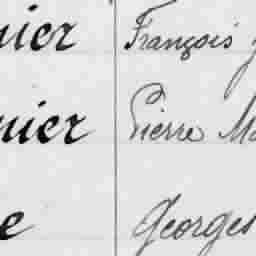 nier François
nier Pierre
e Georges